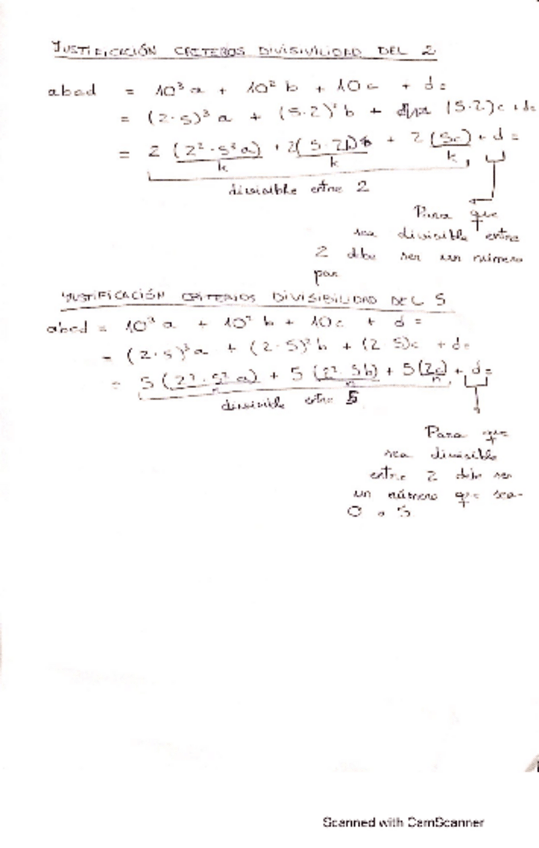 JUSTIFICACIÓN CRITERIOS DIVISIVILIDAD DEL 2
abcd = 10³a + 10²b + 10c + d =
= (2·5)³a + (5·2)²b + (5·2)c + d=
= 2 (2²·5³a) + 2(5·2b)5 + 2 (5c) + d =
k k k
divisible entre 2
Para que
sea divisible entre
2 debe ser un número
par
JUSTIFICACIÓN CRITERIOS DIVISIBILIDAD DEL 5
abcd = 10³a + 10²b + 10c + d =
= (2·5)³a + (2·5)²b + (2 5)c + d=
= 5 (2³·5²a) + 5 (2²·5b) + 5(2c) + d=
n n
divisible entre 5
Para que
sea divisible
entre 2 debe ser
un número que sea
0 o 5
Scanned with CamScanner